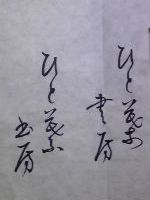 ひと葉書房
ひと葉書房